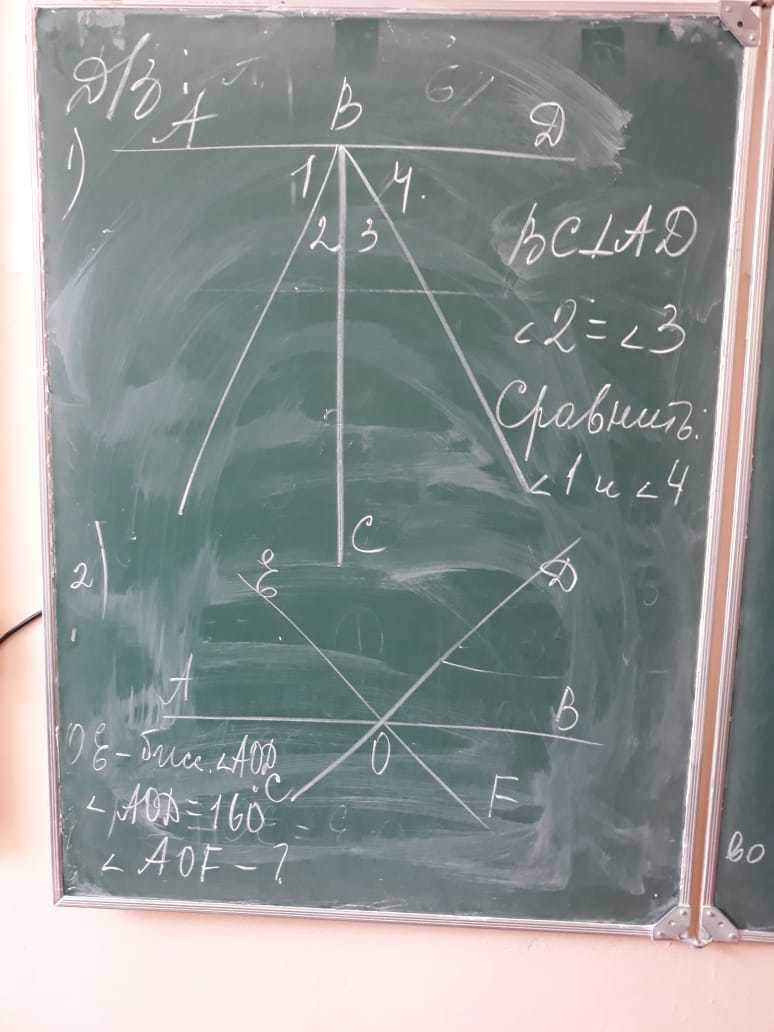 Д/З:
1)
A B D
1 4.
2 3
BC⊥AD
∠2=∠3
Сравнить:
∠1 и ∠4
C
2)
E D
A B
O
C F
OE – бисс. ∠AOD
∠AOD=160°
∠AOF – ?
во